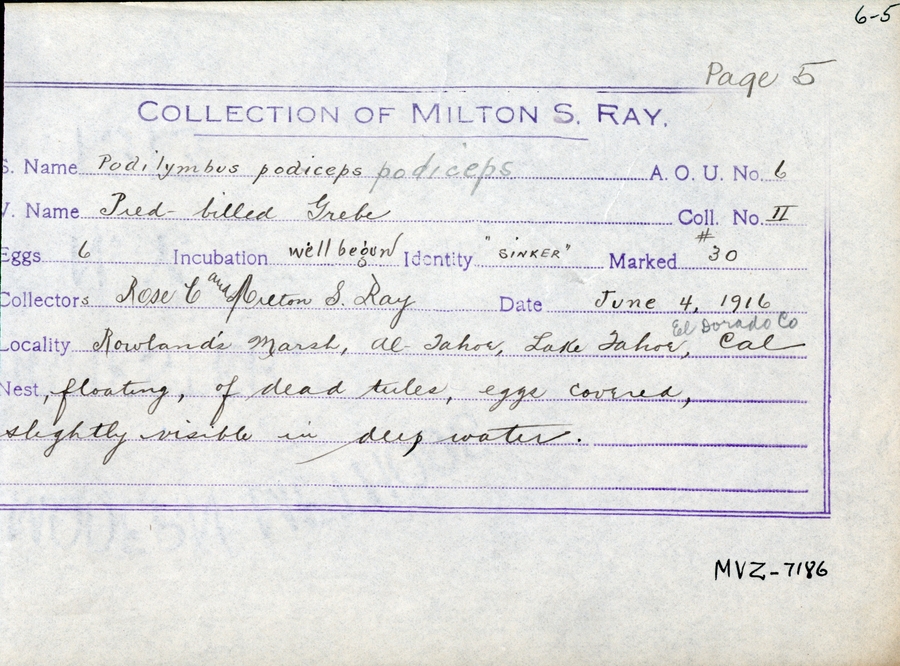 6-5
Page 5
COLLECTION OF MILTON S. RAY.
S. Name Podilymbus podiceps podiceps A. O. U. No. 6
V. Name Pied-billed Grebe Coll. No. II
Eggs 6 Incubation well begun Identity "SINKER" Marked #30
Collectors Rose C and Milton S. Ray Date June 4, 1916
El Dorado Co
Locality Rowland's Marsh, Al-Tahoe, Lake Tahoe, Cal
Nest, floating, of dead tules, eggs covered,
slightly visible in deep water.
MVZ-7186